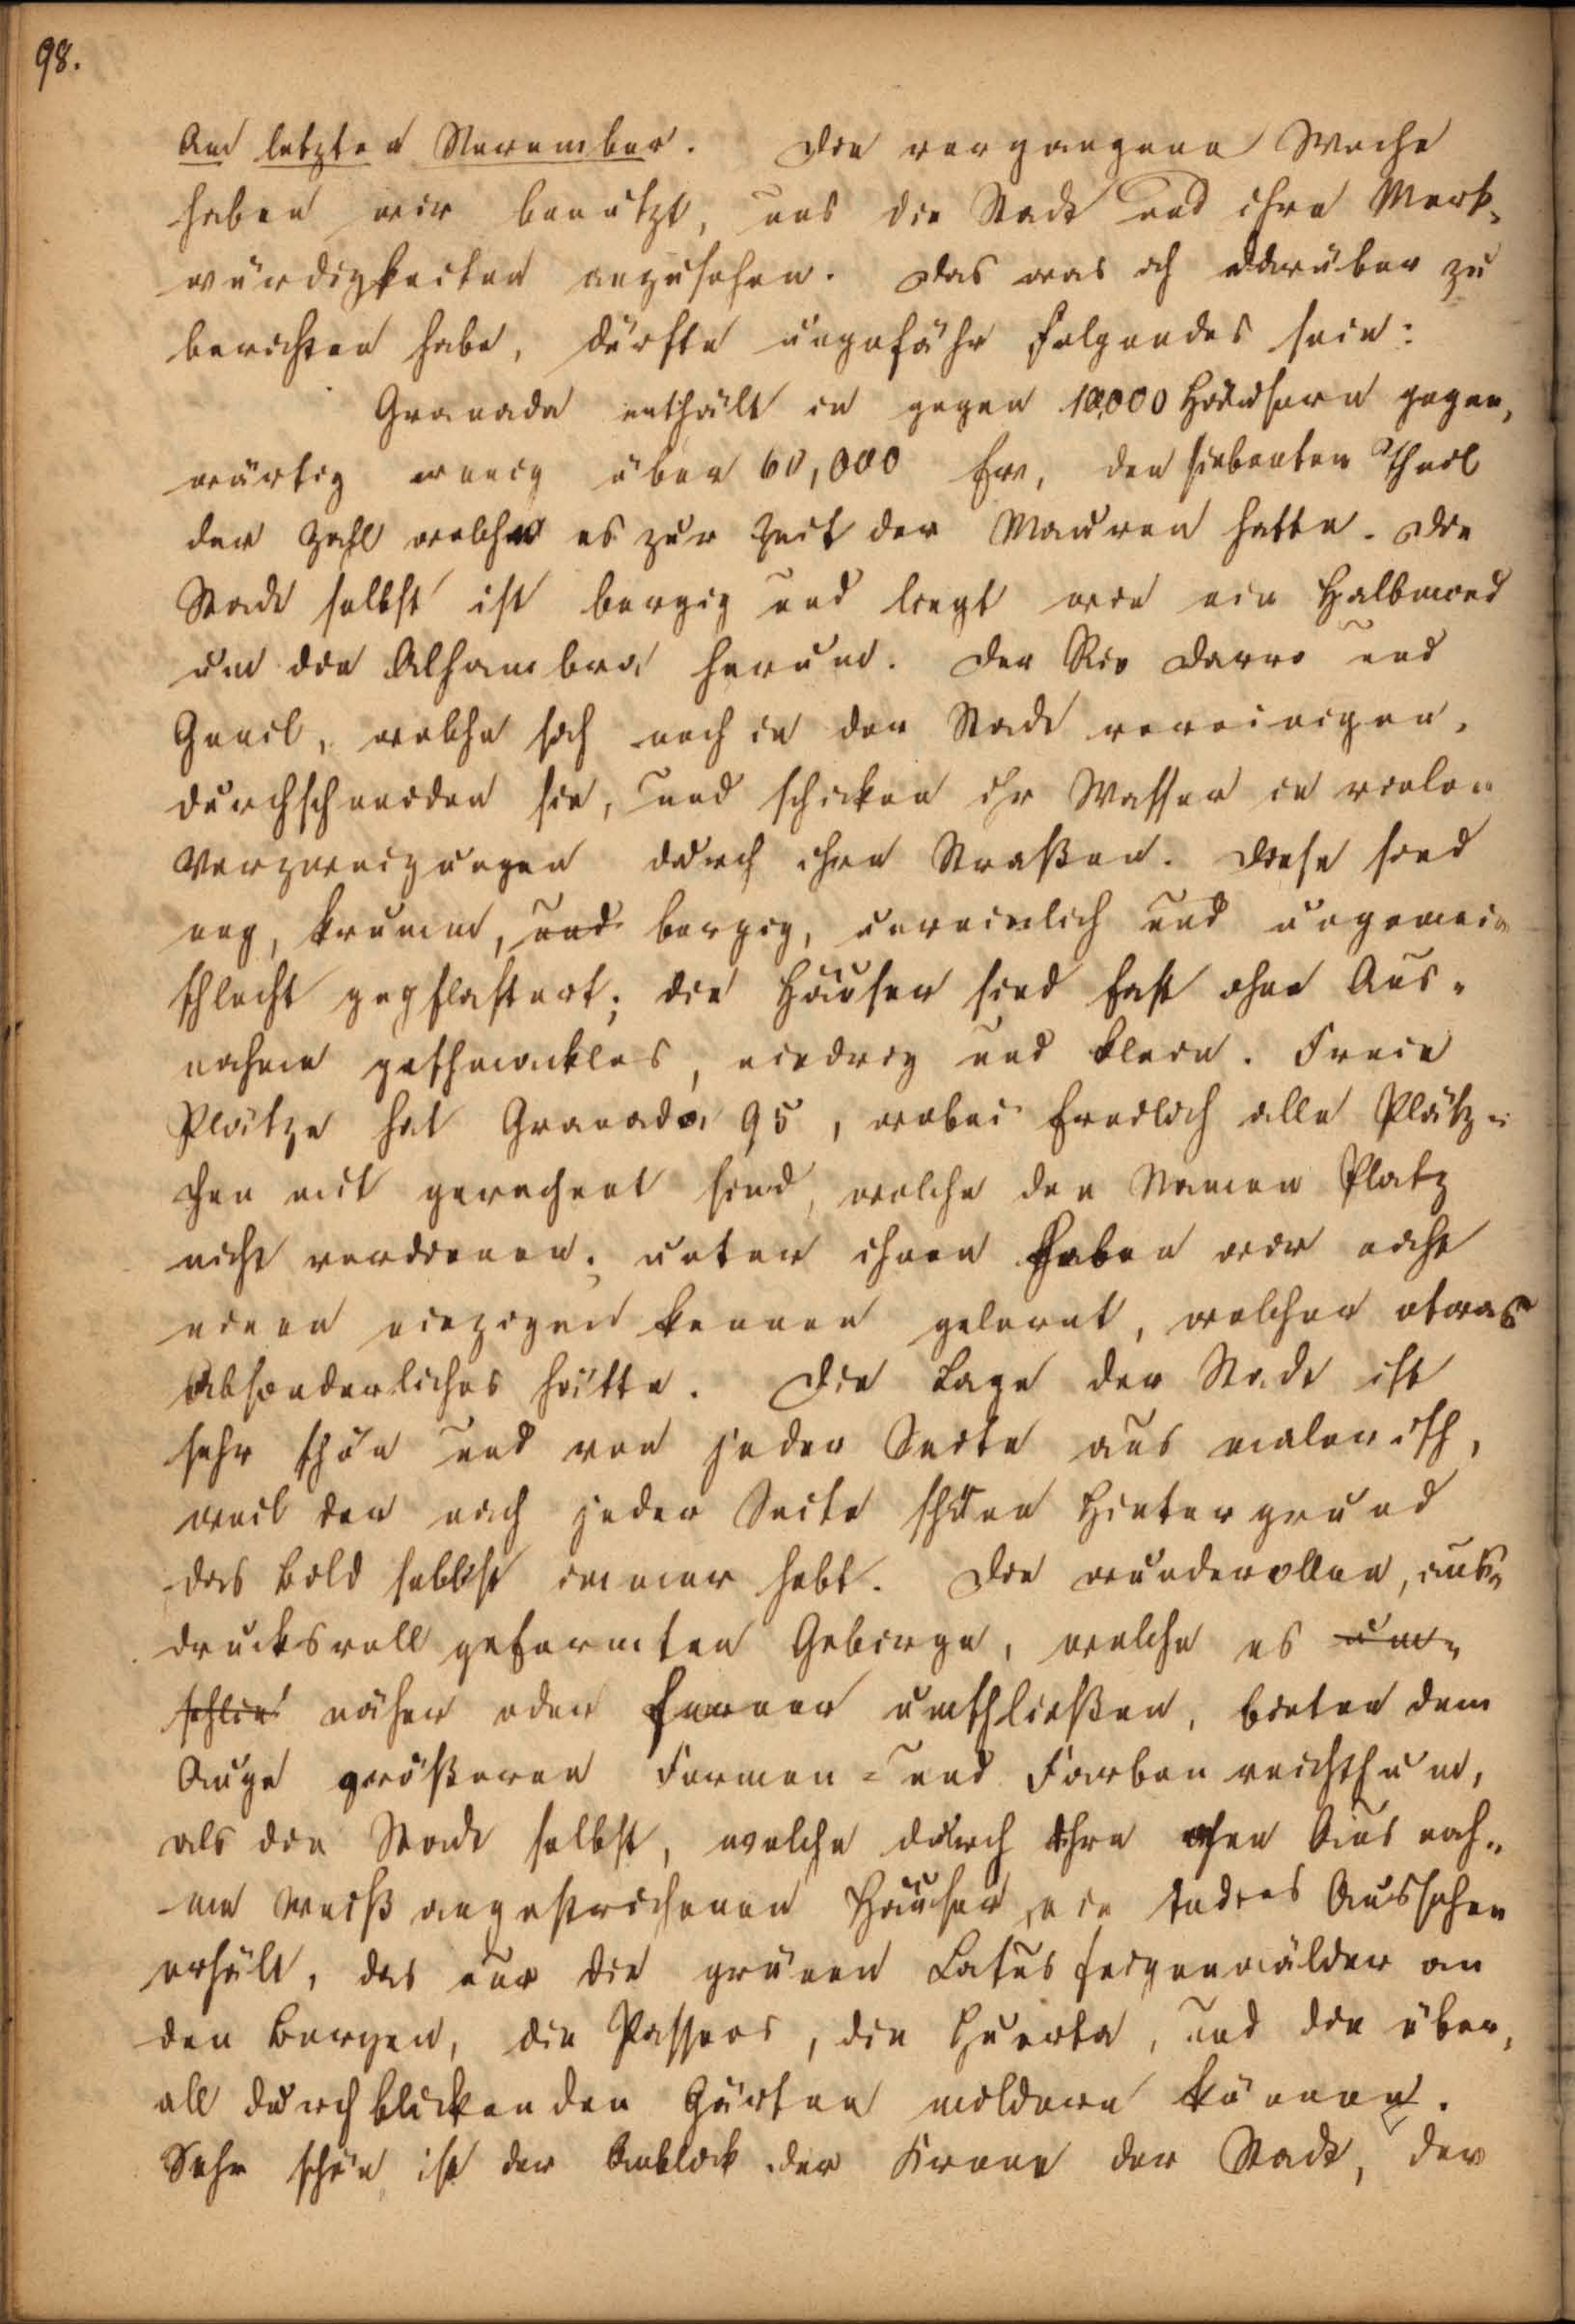 98.
Am letzten November. Die vergangene Woche
haben wir benützt, uns die Stadt und ihre Merk-
würdigkeiten anzusehen. Das was ich darüber zu
berichten habe, dürfte ungefähr folgendes sein:
Granada enthält in gegen 10,000 Häusern gegen-
wärtig wenig über 60,000 Ew, den siebenten Theil
der Zahl welche es zur Zeit der Mauren hatte. Die
Stadt selbst ist bergig und liegt wie ein Halbmond
um die Alhambra herum. Der Rio Darro und
Genil, welche sich noch in der Stadt vereinigen,
durchschneiden sie, und schicken ihr Wasser in vielen
Verzweigungen durch ihre Straßen. Diese sind
eng, krumm, und bergig, unreinlich und ungemein
schlecht gepflastert; die Häuser sind fast ohne Aus-
nahme geschmacklos, niedrig und klein. Freie
Plätze hat Granada 95, wobei freilich alle Plätz-
chen mit gerechnet sind, welche den Namen Platz
nicht verdienen; unter ihnen haben wir nicht
einen einzigen kennen gelernt, welcher etwas
Absonderliches hätte. Die Lage der Stadt ist
sehr schön und von jeder Seite aus malerisch,
weil der nach jeder Seite schöne Hintergrund
das Bild selbst immer hebt. Die wundervollen, aus-
drucksvoll geformten Gebirge, welche es um-
schlie näher oder ferner umschließen, bieten dem
Auge größeren Formen- und Farbenreichthum,
als die Stadt selbst, welche durch ihre ohne Ausnah-
me weiß angestrichenen Häuser ein todtes Aussehen
erhält, das nur die grünen Catusfeigenwälder an
den Bergen, die Passeos, die Huerta, und die über-
all durchblickenden Gärten mildern können.
Sehr schön ist der Anblick der Krone der Stadt, der